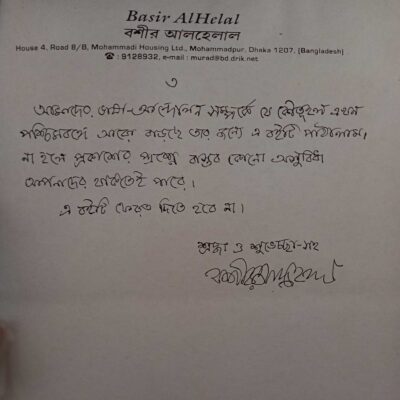 Basir AlHelal
বশীর আলহেলাল
House 4, Road 8/B, Mohammadi Housing Ltd., Mohammadpur, Dhaka 1207, (Bangladesh)
☎ : 9128932, e-mail : murad@bd.drik.net
৩
আমাদের ভাষা-আন্দোলন সম্পর্কে যে কৌতূহল এখন
পশ্চিমবঙ্গে আরো বাড়ছে তার জন্যে এ বইটি পাঠালাম।
না হলে প্রকাশের বাস্তব কোনো অসুবিধা
আপনাদের থাকতেই পারে।
এ বইটি ফেরত দিতে হবে না।
শ্রদ্ধা ও শুভেচ্ছা-সহ
বশীর আলহেলাল